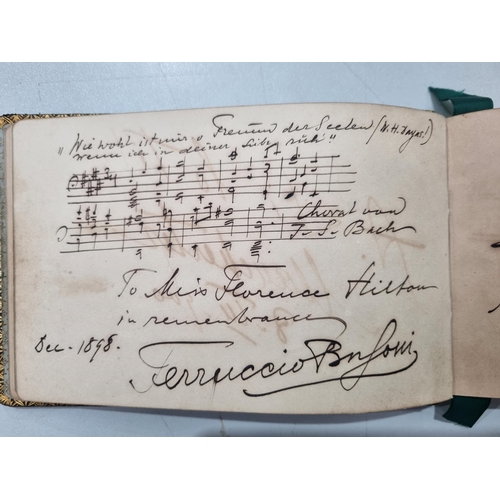 "Wie wohl ist mir, Freund der Seelen (W.H. Dayas!)
wenn ich in deiner Liebe ruh"
Choral von
J. S. Bach
To Miss Florence Hilton
in remembrance
Dec. 1898.
Ferruccio Busoni